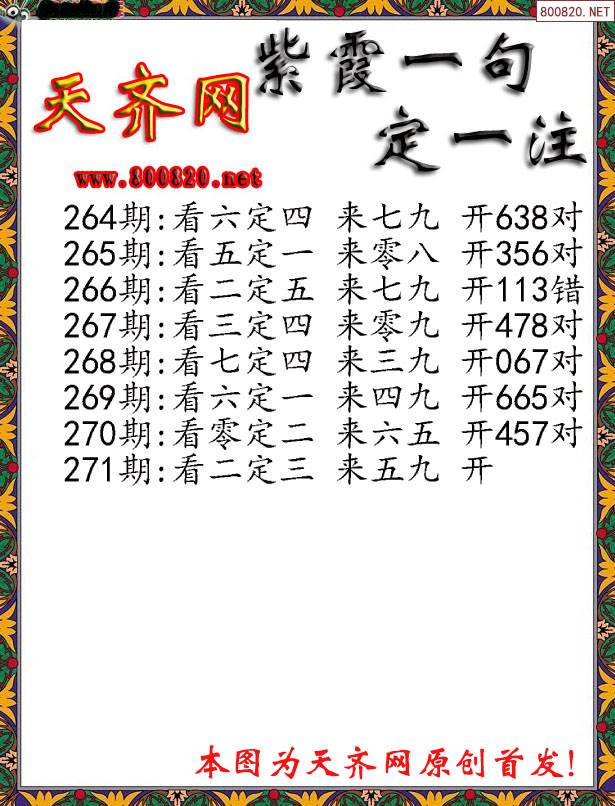 800820.NET
天齐网
紫霞一句
定一注
www.800820.net
264期:看六定四 来七九 开638对
265期:看五定一 来零八 开356对
266期:看二定五 来七九 开113错
267期:看三定四 来零九 开478对
268期:看七定四 来三九 开067对
269期:看六定一 来四九 开665对
270期:看零定二 来六五 开457对
271期:看二定三 来五九 开
本图为天齐网原创首发!